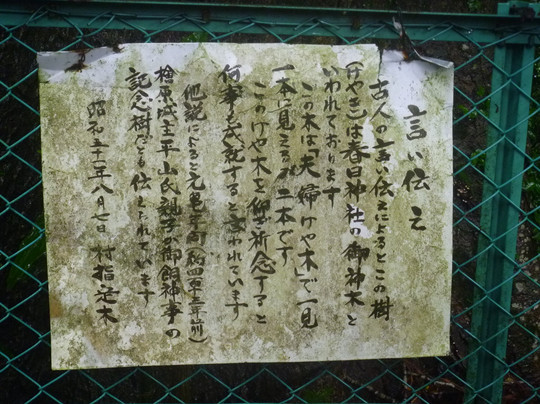 言い伝え
古人の言い伝えによるとこの樹
(けやき)は春日神社の御神木と
いわれております
この木は「夫婦けや木」で一見
一本に見えるが二本です
このけや木を仰ぎ祈念すると
何事も成就すると言われています
他説によると元亀年間(約四百十三年前)
檜原城主平山氏親子が御飼神事の
記念樹だとも伝えられています
昭和五十一年八月七日 村指定木